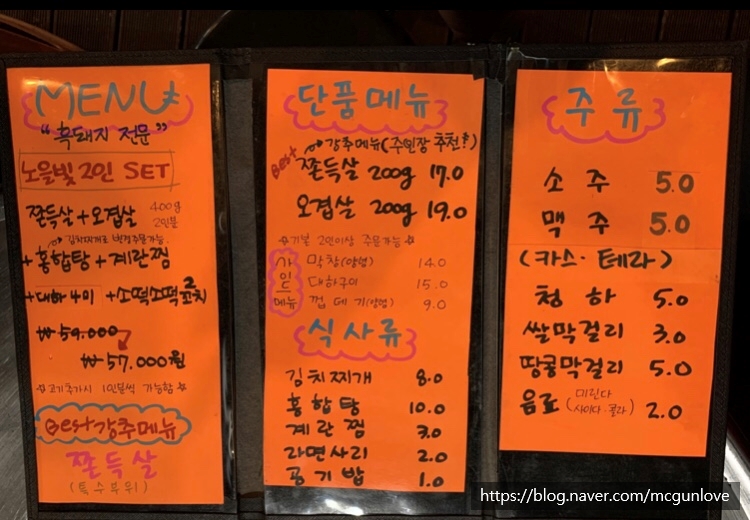 MENU
"흑돼지 전문"
노을빛 2인 SET
쫀득살 + 오겹살 400g 2인분
김치찌개로 변경주문가능.
+ 홍합탕 + 계란찜
+ 대하 4미 + 소떡소떡 2꼬치
₩ 59.000
₩ 57.000원
☆고기추가시 1인분씩 가능함☆
Best 강추메뉴
쫀득살
(특수부위)
단품메뉴
Best 강추메뉴(주인장 추천!)
쫀득살 200g 17.0
오겹살 200g 19.0
☆기본 2인이상 주문가능☆
사이드메뉴
막창(양념) 14.0
대하구이 15.0
껍데기(양념) 9.0
식사류
김치찌개 8.0
홍합탕 10.0
계란찜 3.0
라면사리 2.0
공기밥 1.0
주류
소주 5.0
맥주 5.0
(카스·테라)
청하 5.0
쌀막걸리 3.0
땅콩막걸리 5.0
음료 미린다 (사이다·콜라) 2.0
https://blog.naver.com/mcgunlove